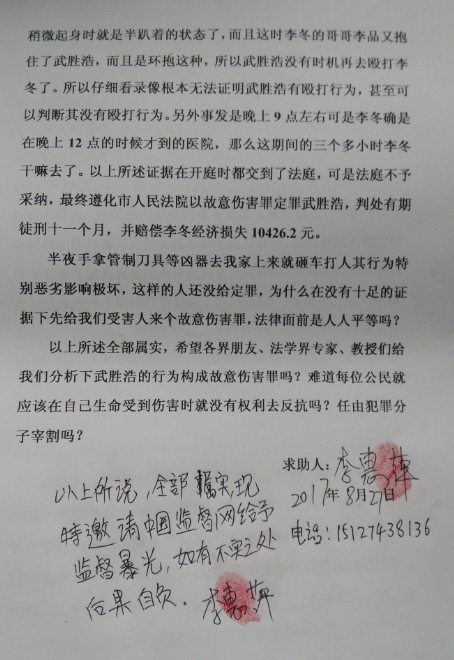 稍微起身时就是半趴着的状态了，而且这时李冬的哥哥李品又抱
住了武胜浩，而且是环抱这种，所以武胜浩没有时机再去殴打李
冬了。所以仔细看录像根本无法证明武胜浩有殴打行为，甚至可
以判断其没有殴打行为。另外事发是晚上 9 点左右可是李冬确是
在晚上 12 点的时候才到的医院，那么这期间的三个多小时李冬
干嘛去了。以上所述证据在开庭时都交到了法庭，可是法庭不予
采纳，最终遵化市人民法院以故意伤害罪定罪武胜浩，判处有期
徒刑十一个月，并赔偿李冬经济损失 10426.2 元。
半夜手拿管制刀具等凶器去我家上来就砸车打人其行为特
别恶劣影响极坏，这样的人还没给定罪，为什么在没有十足的证
据下先给我们受害人来个故意伤害罪，法律面前是人人平等吗？
以上所述全部属实，希望各界朋友、法学界专家、教授们给
我们分析下武胜浩的行为构成故意伤害罪吗？难道每位公民就
应该在自己生命受到伤害时就没有权利去反抗吗？任由犯罪分
子宰割吗？
求助人：李惠萍
2017年8月27日
电话：15127438136
以上所说，全部属实现
特邀请中国监督网给予
监督暴光，如有不实之处
后果自负。李惠萍